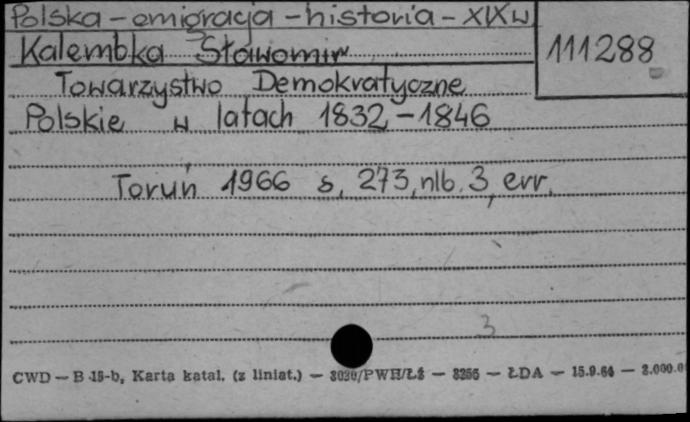 Polska - emigracja - historia - XIXw
Kalembka Sławomir
111288
Towarzystwo Demokratyczne
Polskie w latach 1832-1846
Toruń 1966 s. 273, nlb. 3, err.
3
CWD — B 15-b, Karta katal. (z liniat.) — /PWH/ŁŻ — — ŁDA — 15.9.64 —